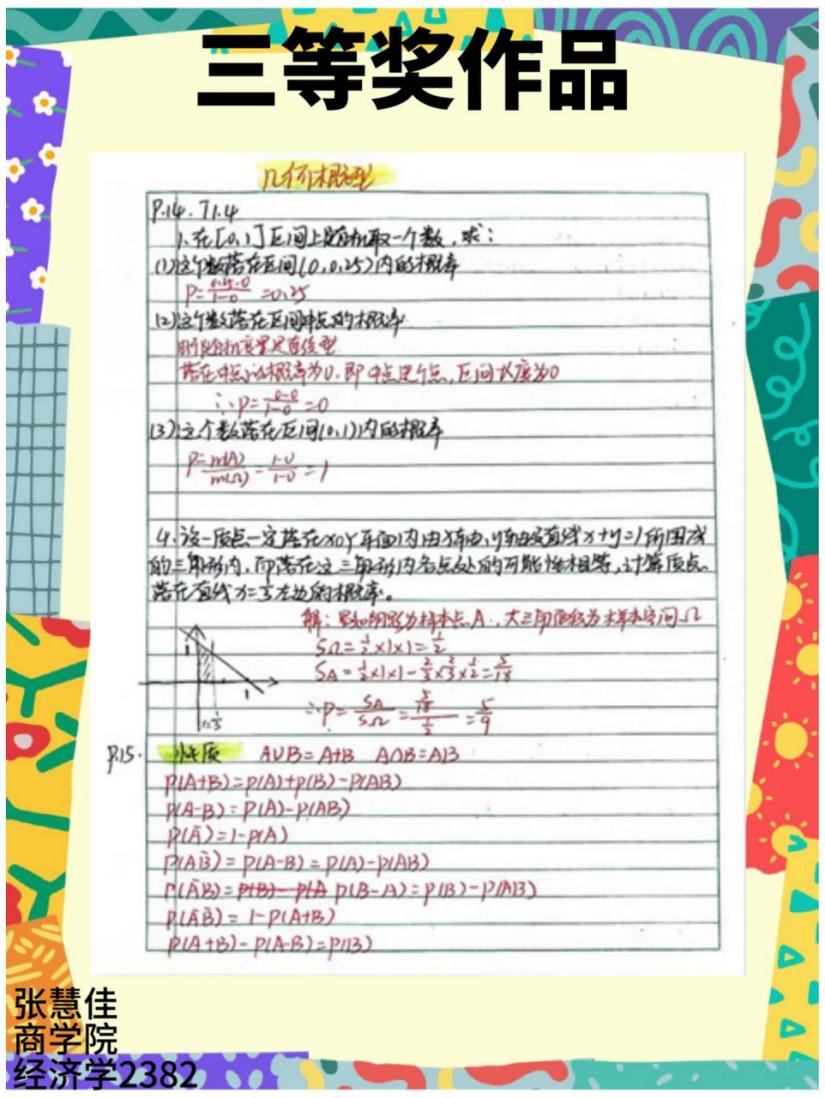 三等奖作品
几何概型
P.14. T1.4
1.在[0,1]区间上随机取一个数,求:
(1)这个数落在区间(0,0.25)内的概率
P=\frac{0.25-0}{1-0}=0.25
(2)这个数落在区间中点的概率
则随机变量是连续型
落在中点的概率为0.即中点是个点,区间长度为0
∴P=\frac{0-0}{1-0}=0
(3)这个数落在区间(0,1)内的概率
P=\frac{m(A)}{m(Ω)}=\frac{1-0}{1-0}=1
4.设一质点一定落在xOy平面内由x轴、y轴及直线x+y=1所围成
的三角形内,而落在这三角形内各点处的可能性相等,计算质点
落在直线x=\frac{1}{3}左边的概率。
解:阴影为样本点A.,大三角面积为样本空间Ω
SΩ=\frac{1}{2}×1×1=\frac{1}{2}
SA=\frac{1}{2}×1×1-\frac{2}{3}×\frac{2}{3}×\frac{1}{2}=\frac{5}{18}
∴P=\frac{SA}{SΩ}=\frac{\frac{5}{18}}{\frac{1}{2}}=\frac{5}{9}
1
1
x=\frac{1}{3}
P.15. 性质 A∪B=A+B A∩B=AB
P(A+B)=P(A)+P(B)-P(AB)
P(A-B)=P(A)-P(AB)
P(Ā)=1-P(A)
P(AB̄)=P(A-B)=P(A)-P(AB)
P(ĀB)=P(B)-P(A P(B-A)=P(B)-P(AB)
P(ĀB̄)=1-P(A+B)
P(A+B)-P(A-B)=P(B)
张慧佳
商学院
经济学2382